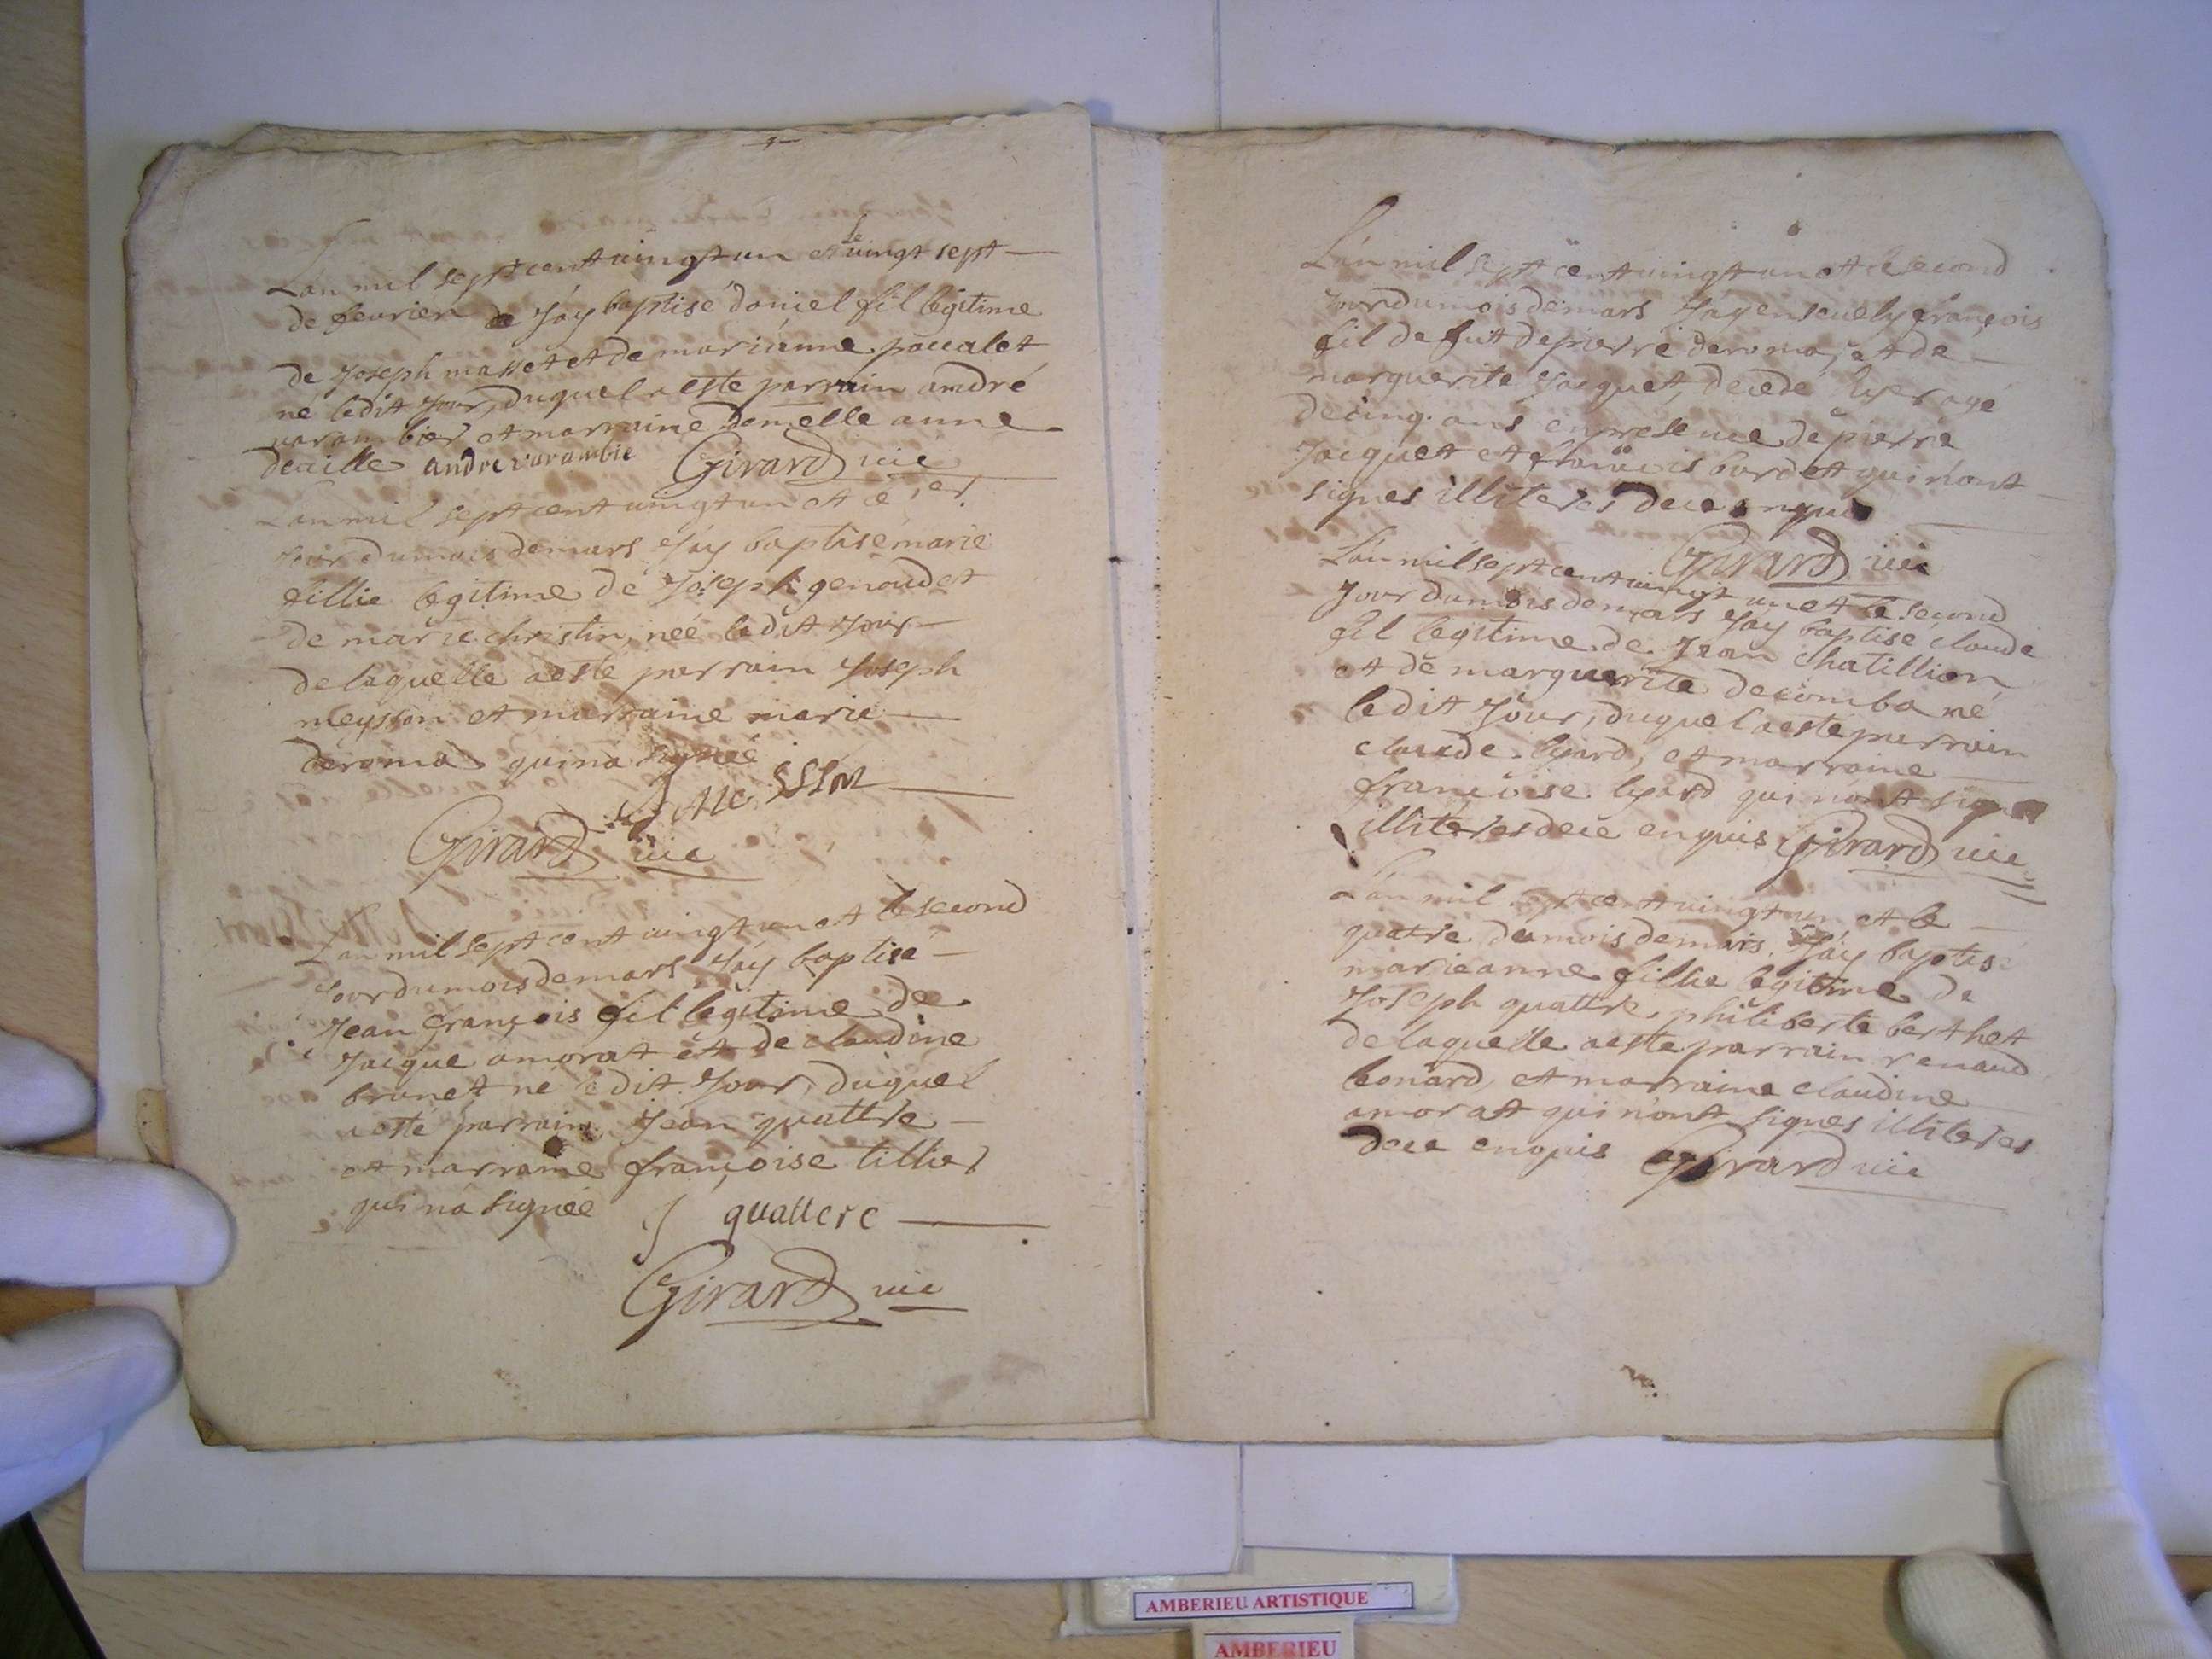 Lan mil sept cent uingt un et le uingt sept
de feurier Jáy baptisé daniel fil legitime
de Joseph masset et de mariánne paualet
né ledit Jour, duquel a este parrain andré
uarambier et marraine demelle anne
deuille andre varambie Girard uic
Lan mil sept cent uingt un et ce 1er
Jour du mois de mars Jáy baptisé marie
fillie legitime de Joseph genoud et
de marie christin, née ledit Jour
de laquelle a este parrain Joseph
meysson et marraine marie
deroma qui na signée
J Meisson
Girard uic
Lan mil sept cent uingt un et le second
Jour du mois de mars Jáy baptisé
Jean françois fil legitime de
Jacque amorat et de claudine
brunet né ledit Jour, duquel
a esté parrain Jean quattre
et marraine françoise tillier
qui na signée J quattere
Girard uic
Lán mil sept cent uingt un et le second
Jour du mois de mars Jáy enseuely françois
fil de fut de pierre deroma, et de
marguerite Jacquet, decedé hyer agé
de cinq ans en presence de pierre
Jacquet et francois bordet qui nónt
signes illiteres de ce enquis
Girard uic
Lan mil sept cent uingt un et le second
Jour du mois de mars Jáy baptisé claude
fil legitime de Jean chatillion
et de marguerite decomba né
ledit Jour, duquel a esté parrain
claude lyard, et marraine
françoise lyard qui nont signe
illiteres de ce enquis Girard uic
Lan mil sept cent uingt un et le
quatre du mois de mars Jáy baptisé
marieanne fillie legitime de
Joseph quattre, philiberte berthet
de laquelle a este parrain renaud
leonard, et marraine claudine
amorat qui nónt signes illiteres
de ce enquis Girard uic
AMBERIEU ARTISTIQUE
AMBERIEU